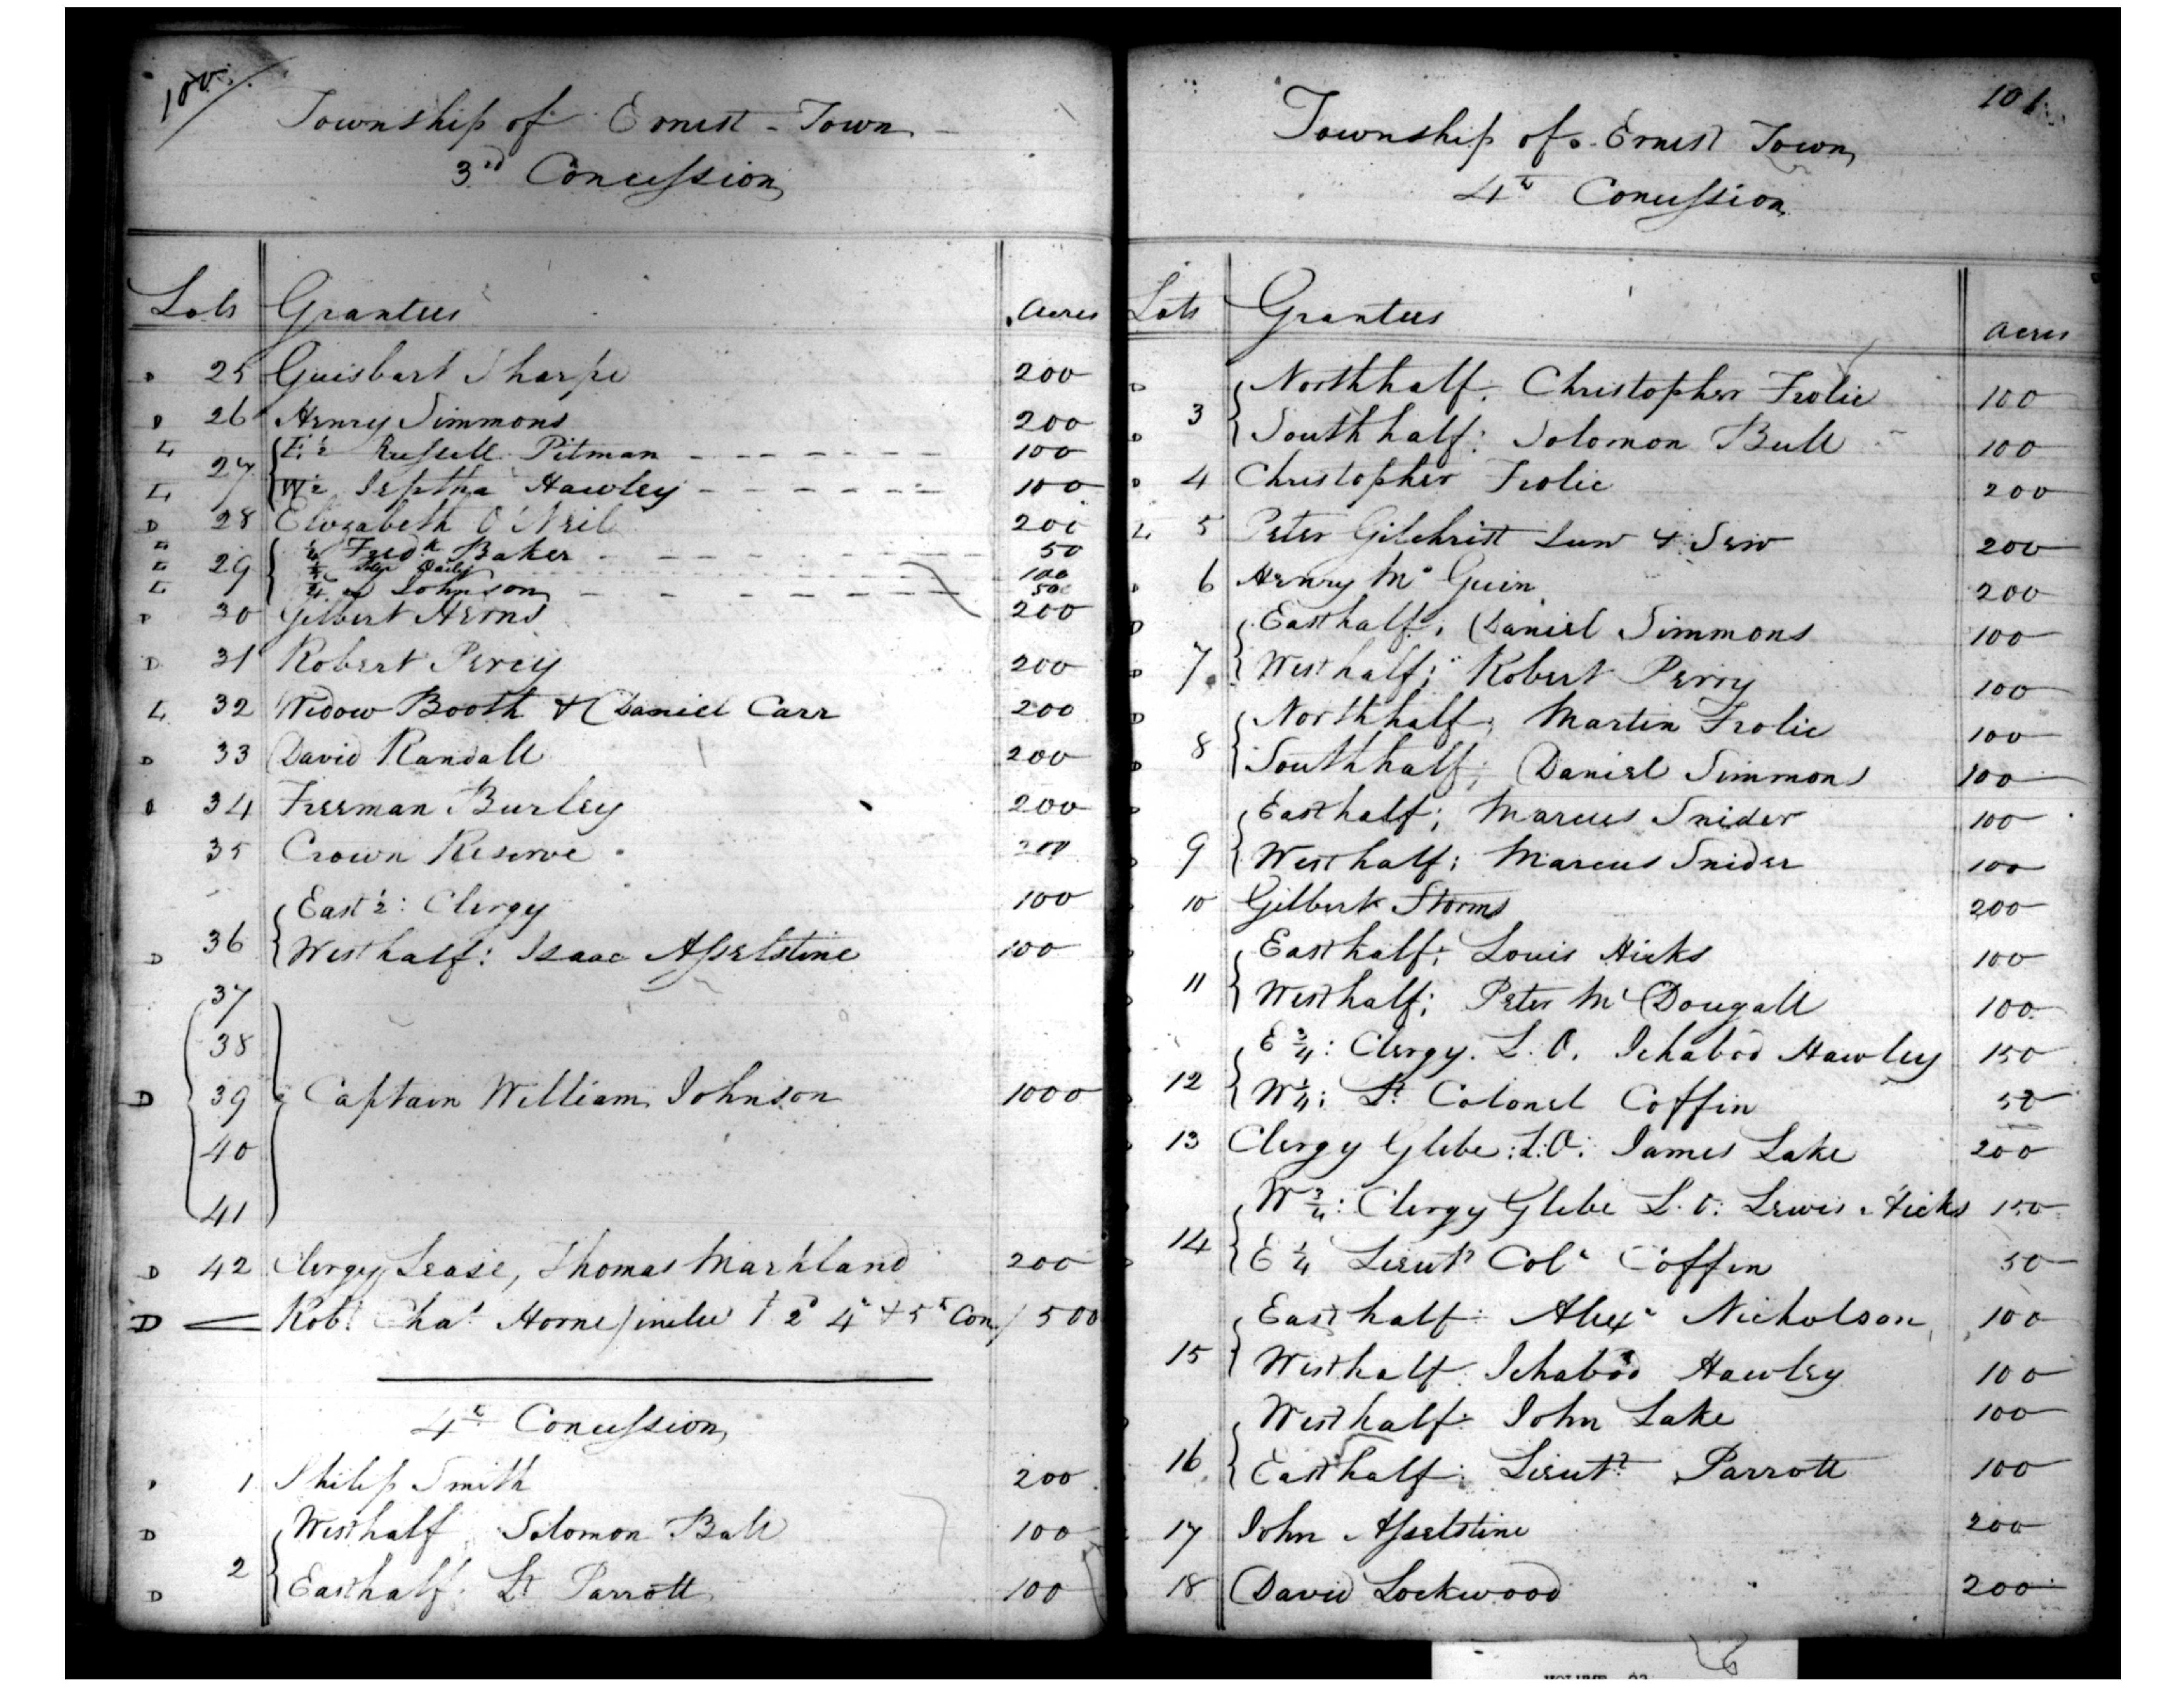 100
Township of Ernest-Town
3rd Concession
Lots Grantees Acres
D 25 Guisbart Sharpe 200
D 26 Henry Simmons 200
L 27 E ½ Russell Pitman 100
L W ½ Jeptha Hawley 100
D 28 Elizabeth O'Neil 200
L 29 ¼ Fredk Baker 50
L Daily 100
L ¼ Johnson 50
D 30 Gilbert 200
D 31 Robert Percy 200
L 32 Widow Booth & Daniel Carr 200
D 33 David Randall 200
D 34 Freeman Burley 200
35 Crown Reserve 200
36 East ½: Clergy 100
D West half: Isaac Asselstine 100
37
38
D 39 Captain William Johnson 1000
40
41
D 42 Clergy Lease, Thomas Markland 200
D Robt Chas Horne / 2d 4th & 5th Con / 500
4th Concession
D 1 Philip Smith 200
D 2 West half Solomon Ball 100
D East half. Lt Parrott 100
101
Township of Ernest Town
4th Concession
Lots Grantees Acres
D 3 North half. Christopher Frolic 100
D South half: Solomon Bull 100
D 4 Christopher Frolic 200
L 5 Peter Gilchrist 200
D 6 Henry Mc Guin 200
D 7 East half; Daniel Simmons 100
D West half; Robert Perry 100
D 8 North half; Martin Frolic 100
D South half; Daniel Simmons 100
D 9 East half; Marcus Snider 100
D West half; Marcus Snider 100
10 Gilbert Storms 200
11 East half; Louis Hicks 100
West half; Peter Mc Dougall 100
12 E ¾: Clergy. L. O. Ichabod Hawley 150
W ¼: Lt Colonel Coffin 50
13 Clergy Glebe: L. O: James Lake 200
14 W ¾: Clergy Glebe L. O: Lewis Hicks 150
E ¼ Lieut Col Coffin 50
15 East half: Alexr Nicholson 100
West half. Ichabod Hawley 100
16 West half: John Lake 100
East half: Lieut Parrott 100
17 John Asselstine 200
18 David Lockwood 200